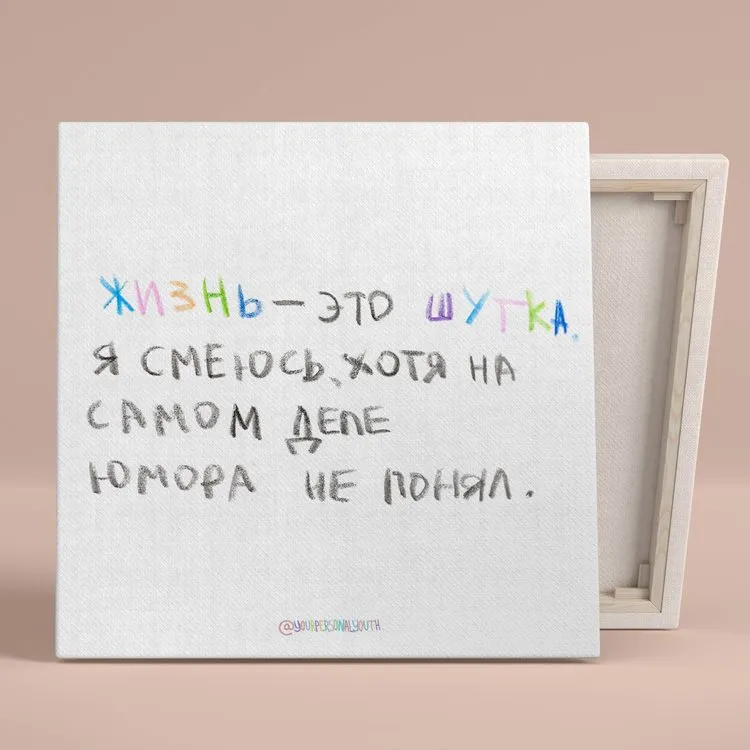 ЖИЗНЬ — ЭТО ШУТКА.
Я СМЕЮСЬ, ХОТЯ НА
САМОМ ДЕЛЕ
ЮМОРА НЕ ПОНЯЛ.
@YOURPERSONALYOUTH